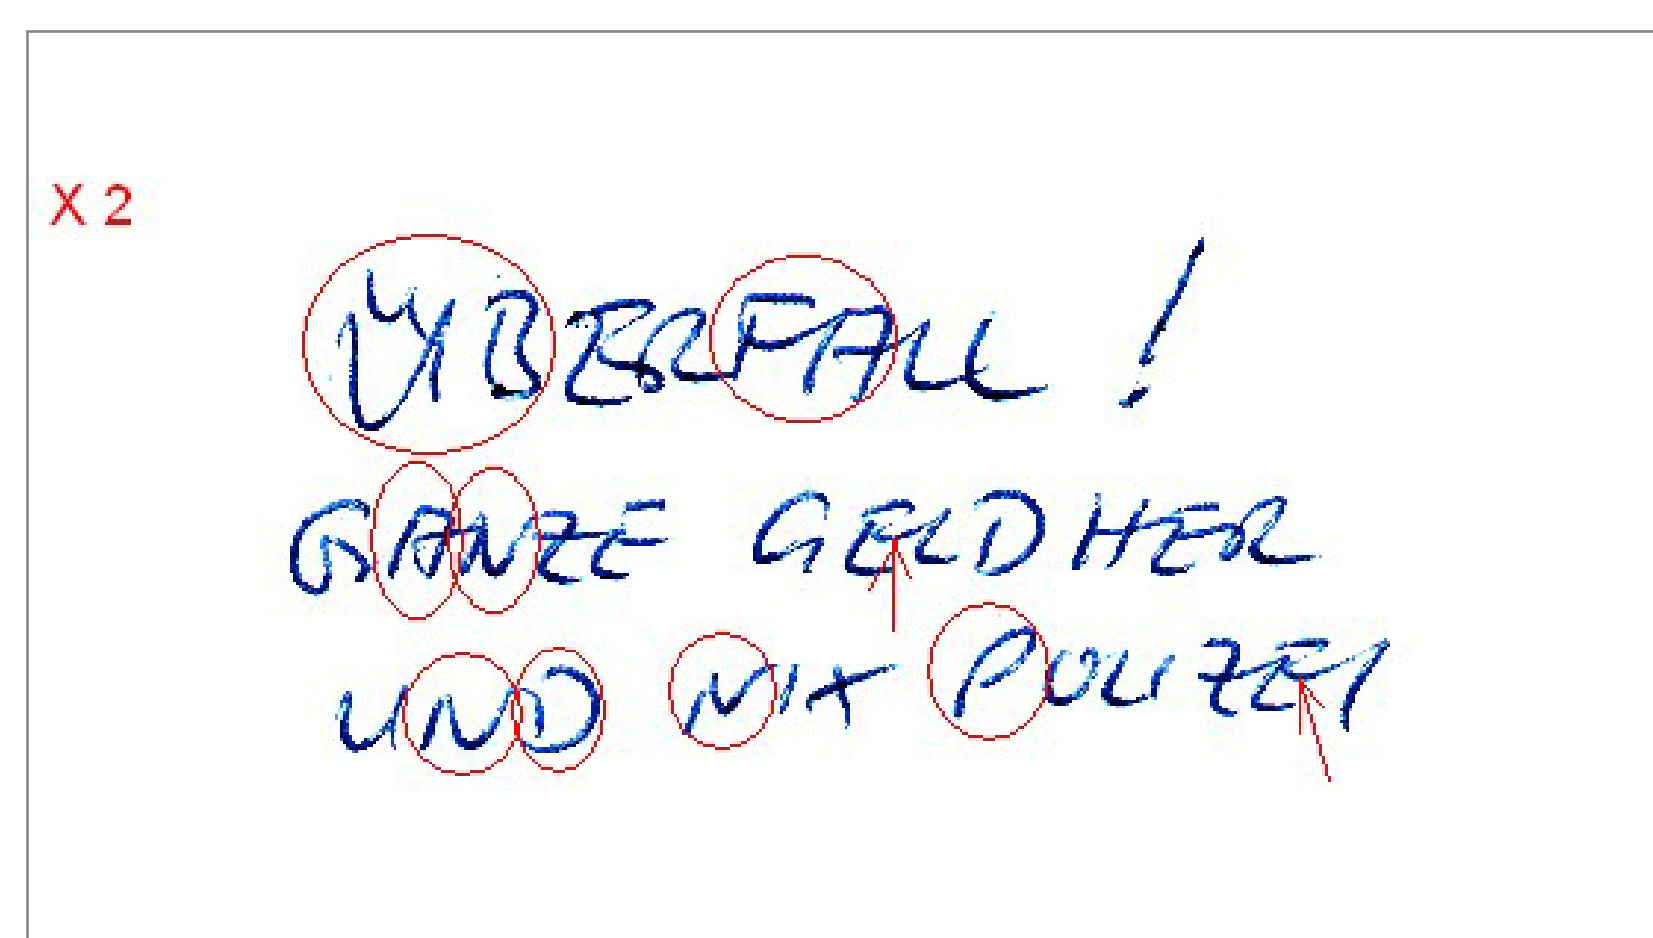 X 2
ÜBERFALL !
GANZE GELD HER
UND NIX POLIZEI